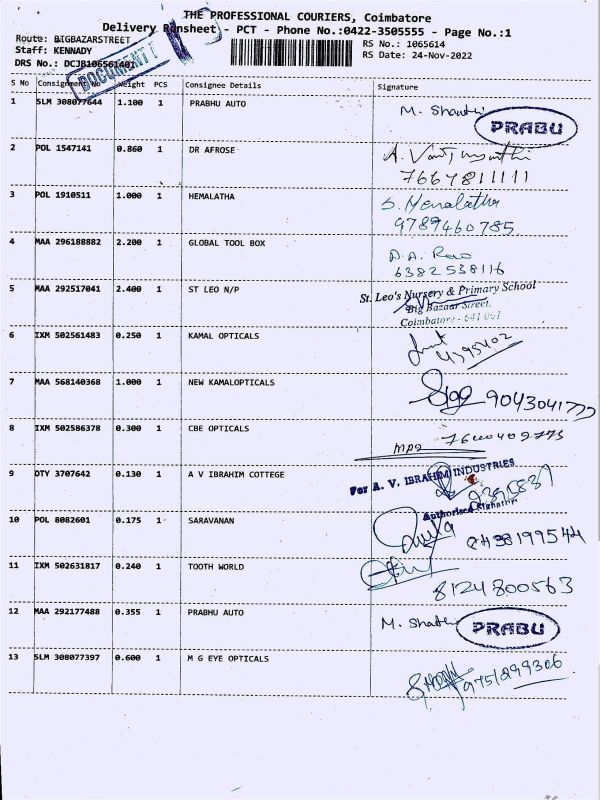 THE PROFESSIONAL COURIERS, Coimbatore
Delivery Runsheet - PCT - Phone No.:0422-3505555 - Page No.:1
Route: BIGBAZARSTREET
RS No.: 1065614
Staff: KENNADY
RS Date: 24-Nov-2022
DRS No.: DCJB106561401
DOCUMENT
S No Consignment No Weight PCS Consignee Details Signature
1 SLM 308077644 1.100 1 PRABHU AUTO M. Shanthi PRABU
2 POL 1547141 0.860 1 DR AFROSE
3 POL 1910511 1.000 1 HEMALATHA S. Hemalatha
9789460785
4 MAA 296188882 2.200 1 GLOBAL TOOL BOX D.A. Rao
6382538116
5 MAA 292517041 2.400 1 ST LEO N/P St. Leo's Nursery & Primary School
Big Bazaar Street,
Coimbatore - 641 001
6 IXM 502561483 0.250 1 KAMAL OPTICALS
4395402
7 MAA 568140368 1.000 1 NEW KAMALOPTICALS
8 IXM 502586378 0.300 1 CBE OPTICALS
9 DTY 3707642 0.130 1 A V IBRAHIM COTTEGE For A. V. IBRAHIM INDUSTRIES
Authorised Signatory
10 POL 8082601 0.175 1 SARAVANAN
11 IXM 502631817 0.240 1 TOOTH WORLD
8124800563
12 MAA 292177488 0.355 1 PRABHU AUTO M. Shanthi PRABU
13 SLM 308077397 0.600 1 M G EYE OPTICALS
9751299306